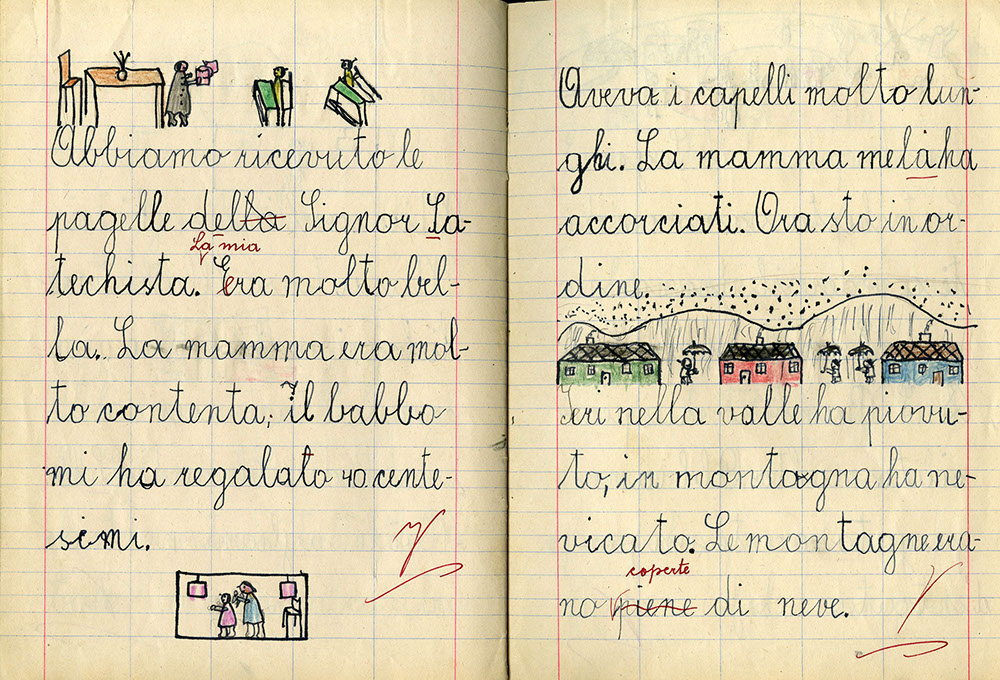 Abbiamo ricevuto le
pagelle della Signor Ca-
La mia
techista. Era molto bel-
la. La mamma era mol-
to contenta; il babbo
mi ha regalato 40 cente-
simi.
Aveva i capelli molto lun-
ghi. La mamma me là ha
accorciati. Ora sto in or-
dine.
Ieri nella valle ha piovu-
to; in montagna ha ne-
vicato. Le montagne era-
coperte
no piene di neve.